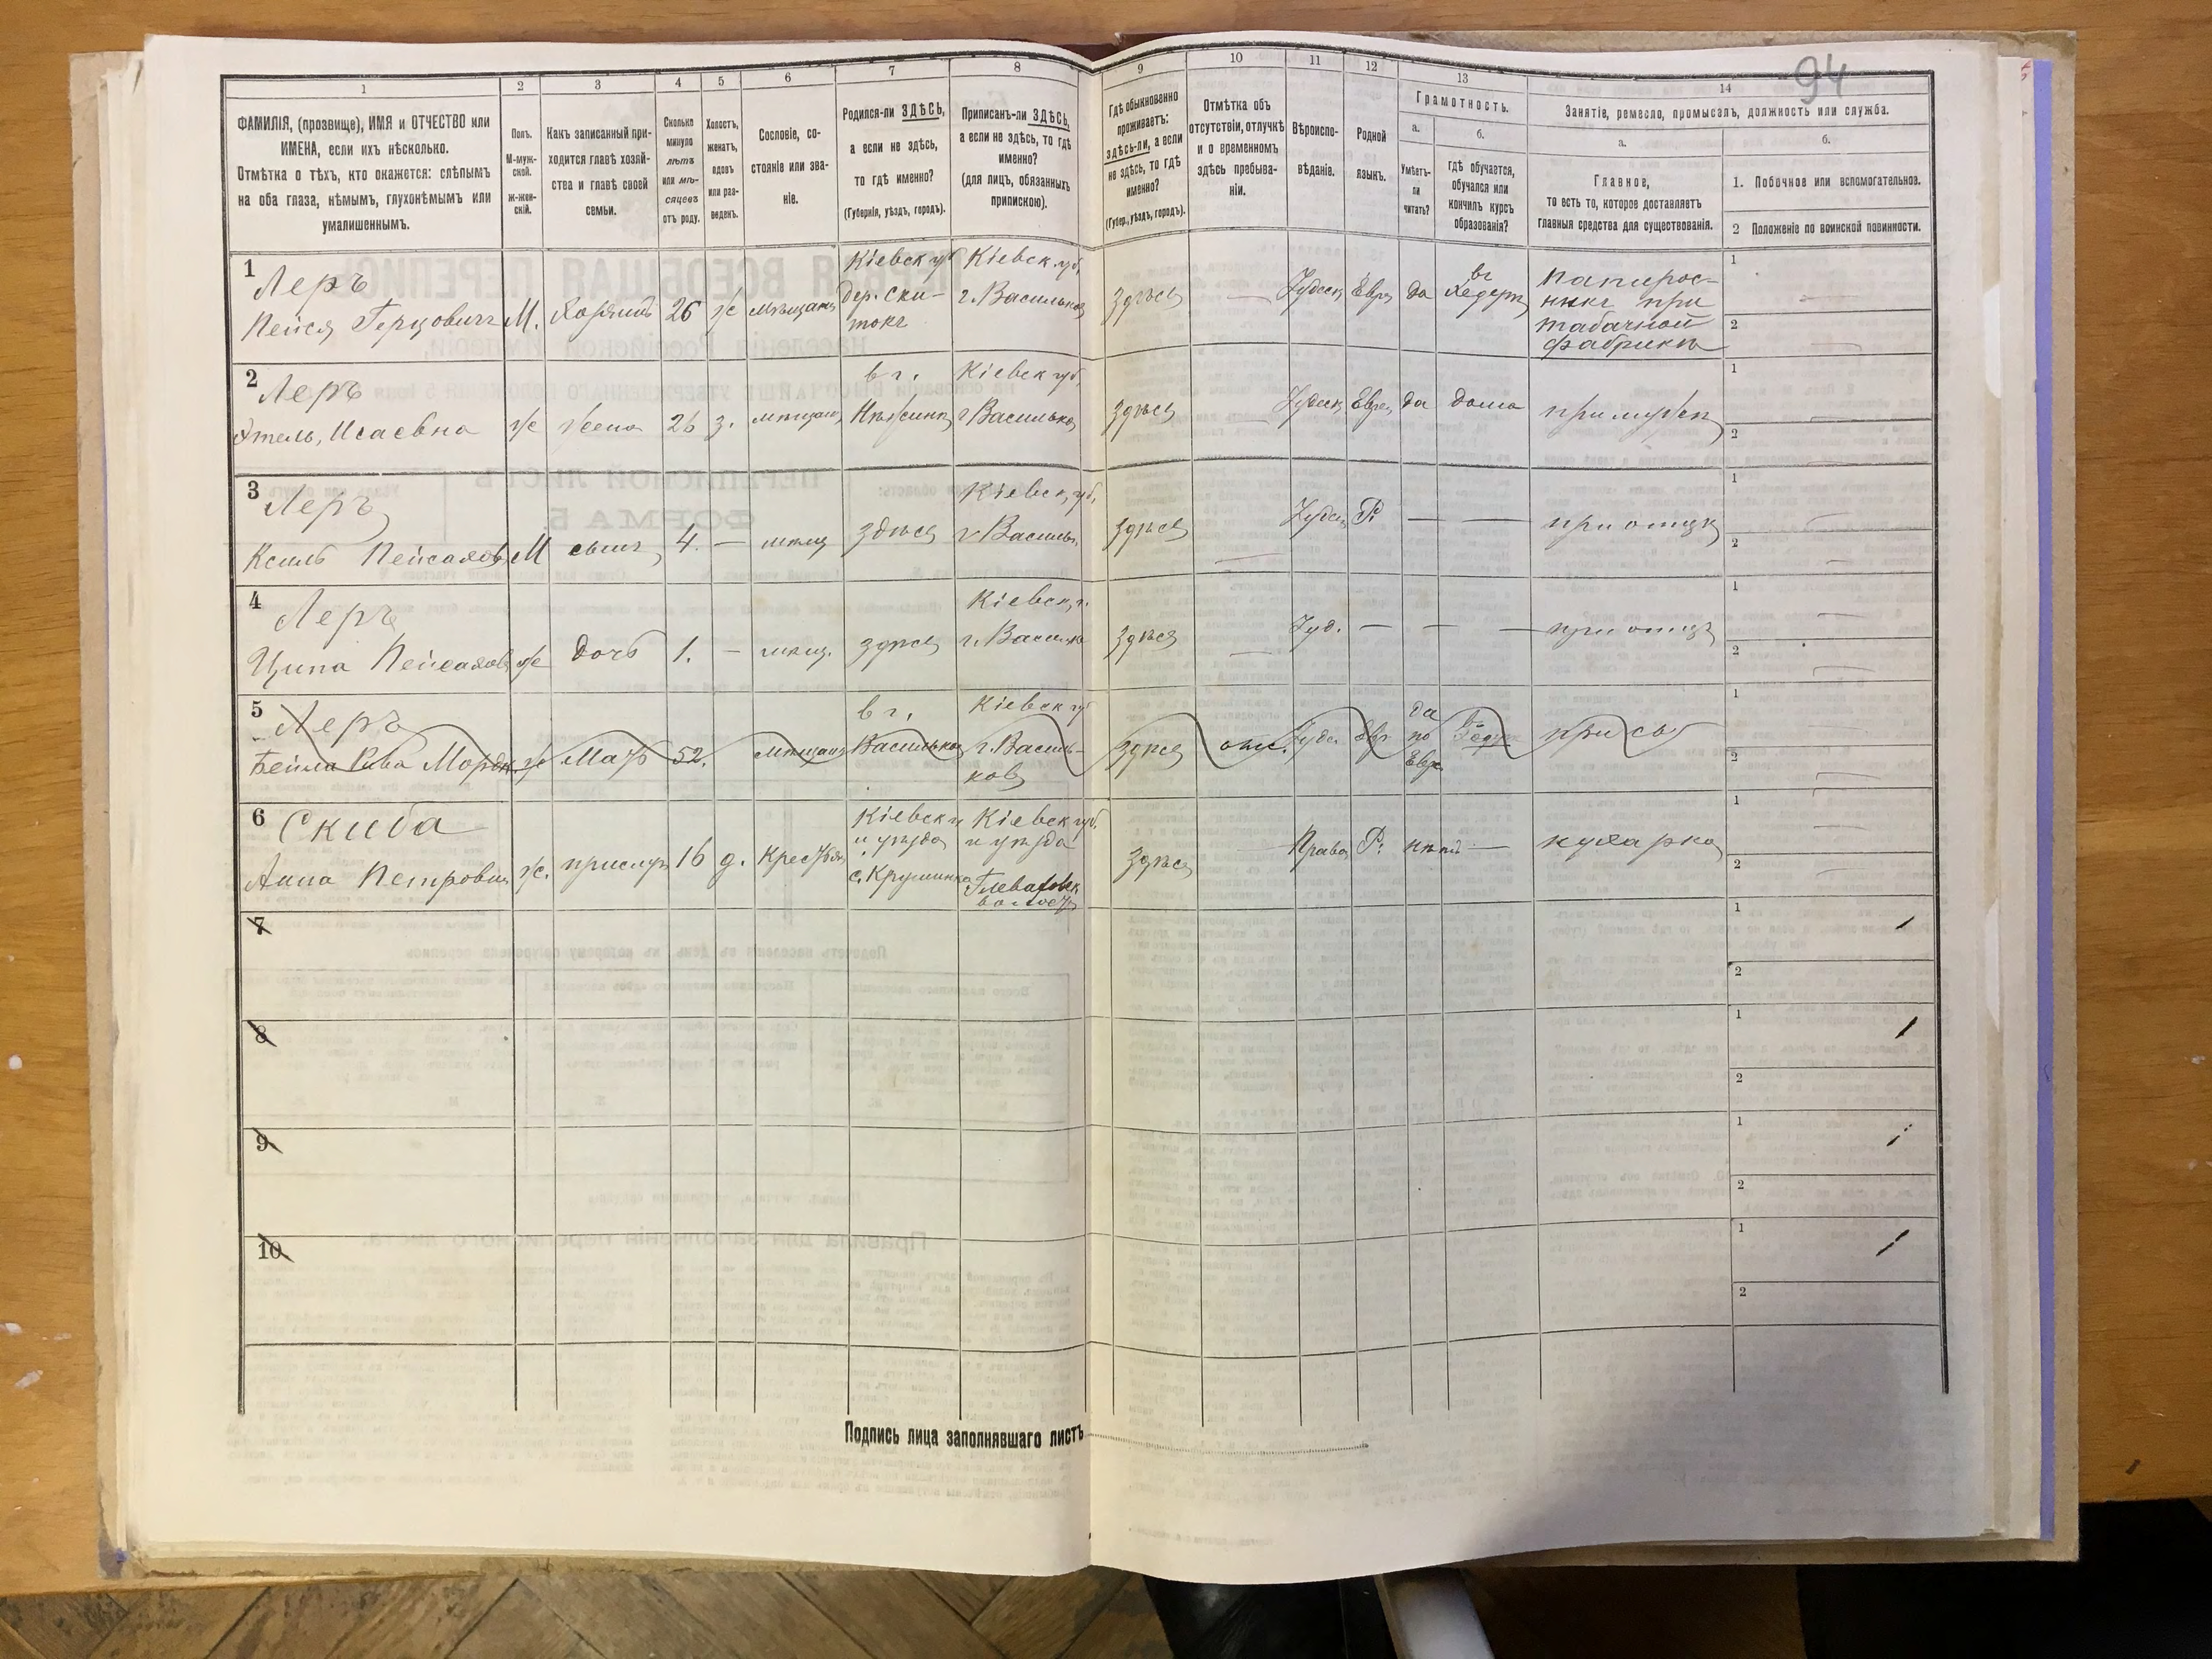 94
1 2 3 4 5 6 7 8 9 10 11 12 13 14
ФАМИЛІЯ, (прозвище), ИМЯ и ОТЧЕСТВО или
ИМЕНА, если ихъ нѣсколько.
Отмѣтка о тѣхъ, кто окажется: слѣпымъ
на оба глаза, нѣмымъ, глухонѣмымъ или
умалишеннымъ.
Полъ.
М-муж-
ской.
ж-жен-
скій.
Какъ записанный при-
ходится главѣ хозяй-
ства и главѣ своей
семьи.
Сколько
минуло
лѣтъ
или мѣ-
сяцевъ
отъ роду.
Холостъ,
женатъ,
вдовъ
или раз-
веденъ.
Сословіе, со-
стояніе или зва-
ніе.
Родился-ли ЗДѢСЬ,
а если не здѣсь,
то гдѣ именно?
(Губернія, уѣздъ, городъ).
Приписанъ-ли ЗДѢСЬ,
а если не здѣсь, то гдѣ
именно?
(для лицъ, обязанныхъ
припискою).
Гдѣ обыкновенно
проживаетъ:
здѣсь-ли, а если
не здѣсь, то гдѣ
именно?
(Губер., уѣздъ, городъ).
Отмѣтка объ
отсутствіи, отлучкѣ
и о временномъ
здѣсь пребыва-
ніи.
Вѣроиспо-
вѣданіе.
Родной
языкъ.
Грамотность.
а.
Умѣетъ-
ли
читать?
б.
гдѣ обучается,
обучался или
кончилъ курсъ
образованія?
Занятіе, ремесло, промыселъ, должность или служба.
а.
Главное,
то есть то, которое доставляетъ
главныя средства для существованія.
б.
1. Побочное или вспомогательное.
2 Положеніе по воинской повинности.
1 Леръ
Пейся Герцовичъ М. Хозяинъ 26 ж мѣщан
Кіевск губ
дер. Ски-
токъ
Кіевск. губ,
г. Васильков
здѣсь — Іудеск Евре да
въ
Хедерѣ
папирос-
никъ при
табачной
фабрикѣ
1
2
2 Леръ
Этель, Исаевна ж жена 26 з. мѣщан,
в г.
Нѣжинѣ
Кіевск губ,
г Васильков
здѣсь — Іудеск Евре да дома при мужѣ
1
2
3 Леръ
Ксиль Пейсахов М сынъ 4. — мѣщ здѣсь
Кіевск, губ,
г Васильк
здѣсь — Іудеск Р. — — при отцѣ
1
2
4 Леръ
Ципа Пейсахов ж дочь 1. — мѣщ. здѣсь
Кіевск, г.
г. Василько
здѣсь — Іуд. — — — при отцѣ
1
2
5 Леръ
Бейла Рива Мордк ж Мать 52. мѣщан
в г.
Васильков
Кіевск губ
г. Василь-
ков
здѣсь отс. Іудс. Евр.
да
по
Евре
при сы
1
2
6 Скиба
Анна Петровна ж. прислуг 16 д. Крестьян
Кіевск г
и уѣзда
с. Крушинка
Кіевск губ.
и уѣзда
Глеваховск
волост
здѣсь — Право Р. нѣтъ — кухарка
1
2
7
1
2
8
1
2
9
1
2
10
1
2
Подпись лица заполнявшаго листъ